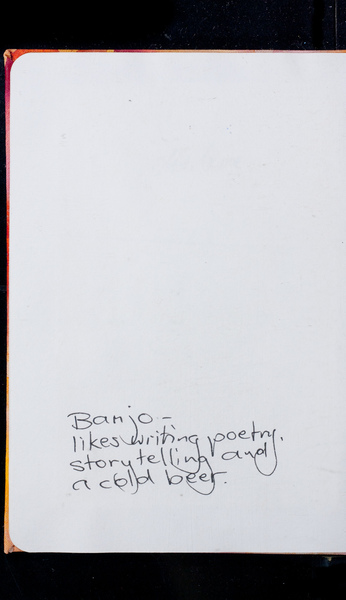 Banjo -
likes writing poetry,
storytelling and
a cold beer.